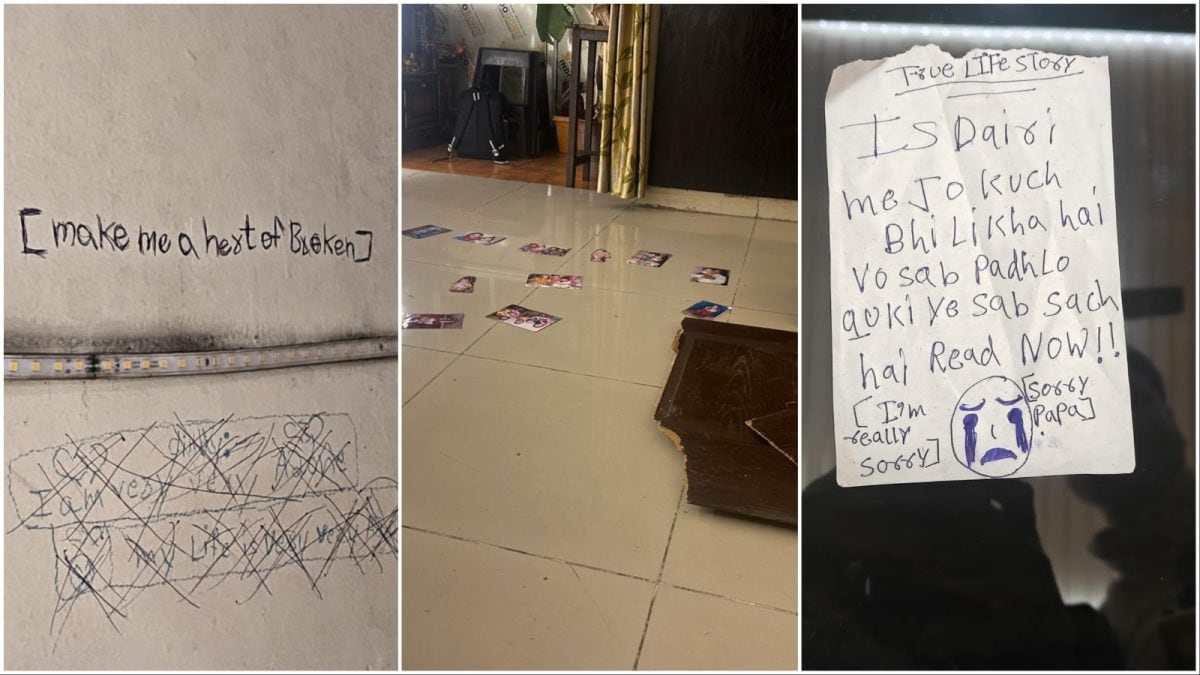 [make me a hert of Broken]
I am very very Alone
my Life is very very
True LIFe story
Is Dairi
me Jo kuch
Bhi Likha hai
vo sab padhLo
quki ye sab sach
hai Read NOW!!
[I'm
really
sorry]
[sorry
papa]